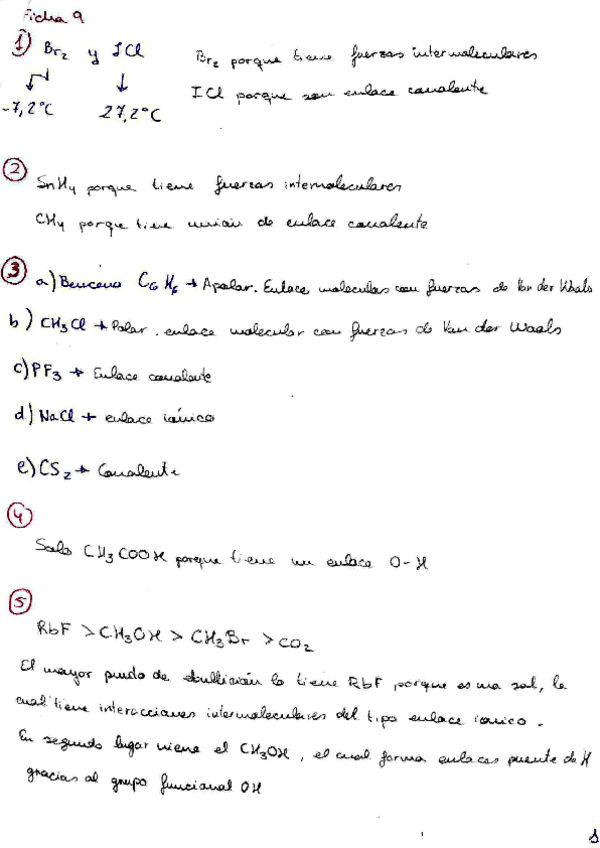 Ficha 9
1) Br2 y ICl
Br2 porque tiene fuerzas intermoleculares
-7,2°C 27,2°C
ICl porque son enlace covalente
2
SnH4 porque tiene fuerzas intermoleculares
CH4 porque tiene unión de enlace covalente
3 a) Benceno C6H6 → Apolar. Enlace moleculas con fuerzas de Van der Waals
b) CH3Cl → Polar. enlace molecular con fuerzas de Van der Waals
c) PF3 → Enlace covalente
d) NaCl → enlace iónico
e) CS2 → Covalente
4
Solo CH3COOH porque tiene un enlace O-H
5
RbF > CH3OH > CH3Br > CO2
El mayor punto de ebullición lo tiene RbF, porque es una sal, la
cual tiene interacciones intermoleculares del tipo enlace iónico.
En segundo lugar viene el CH3OH, el cual forma enlaces puente de H
gracias al grupo funcional OH